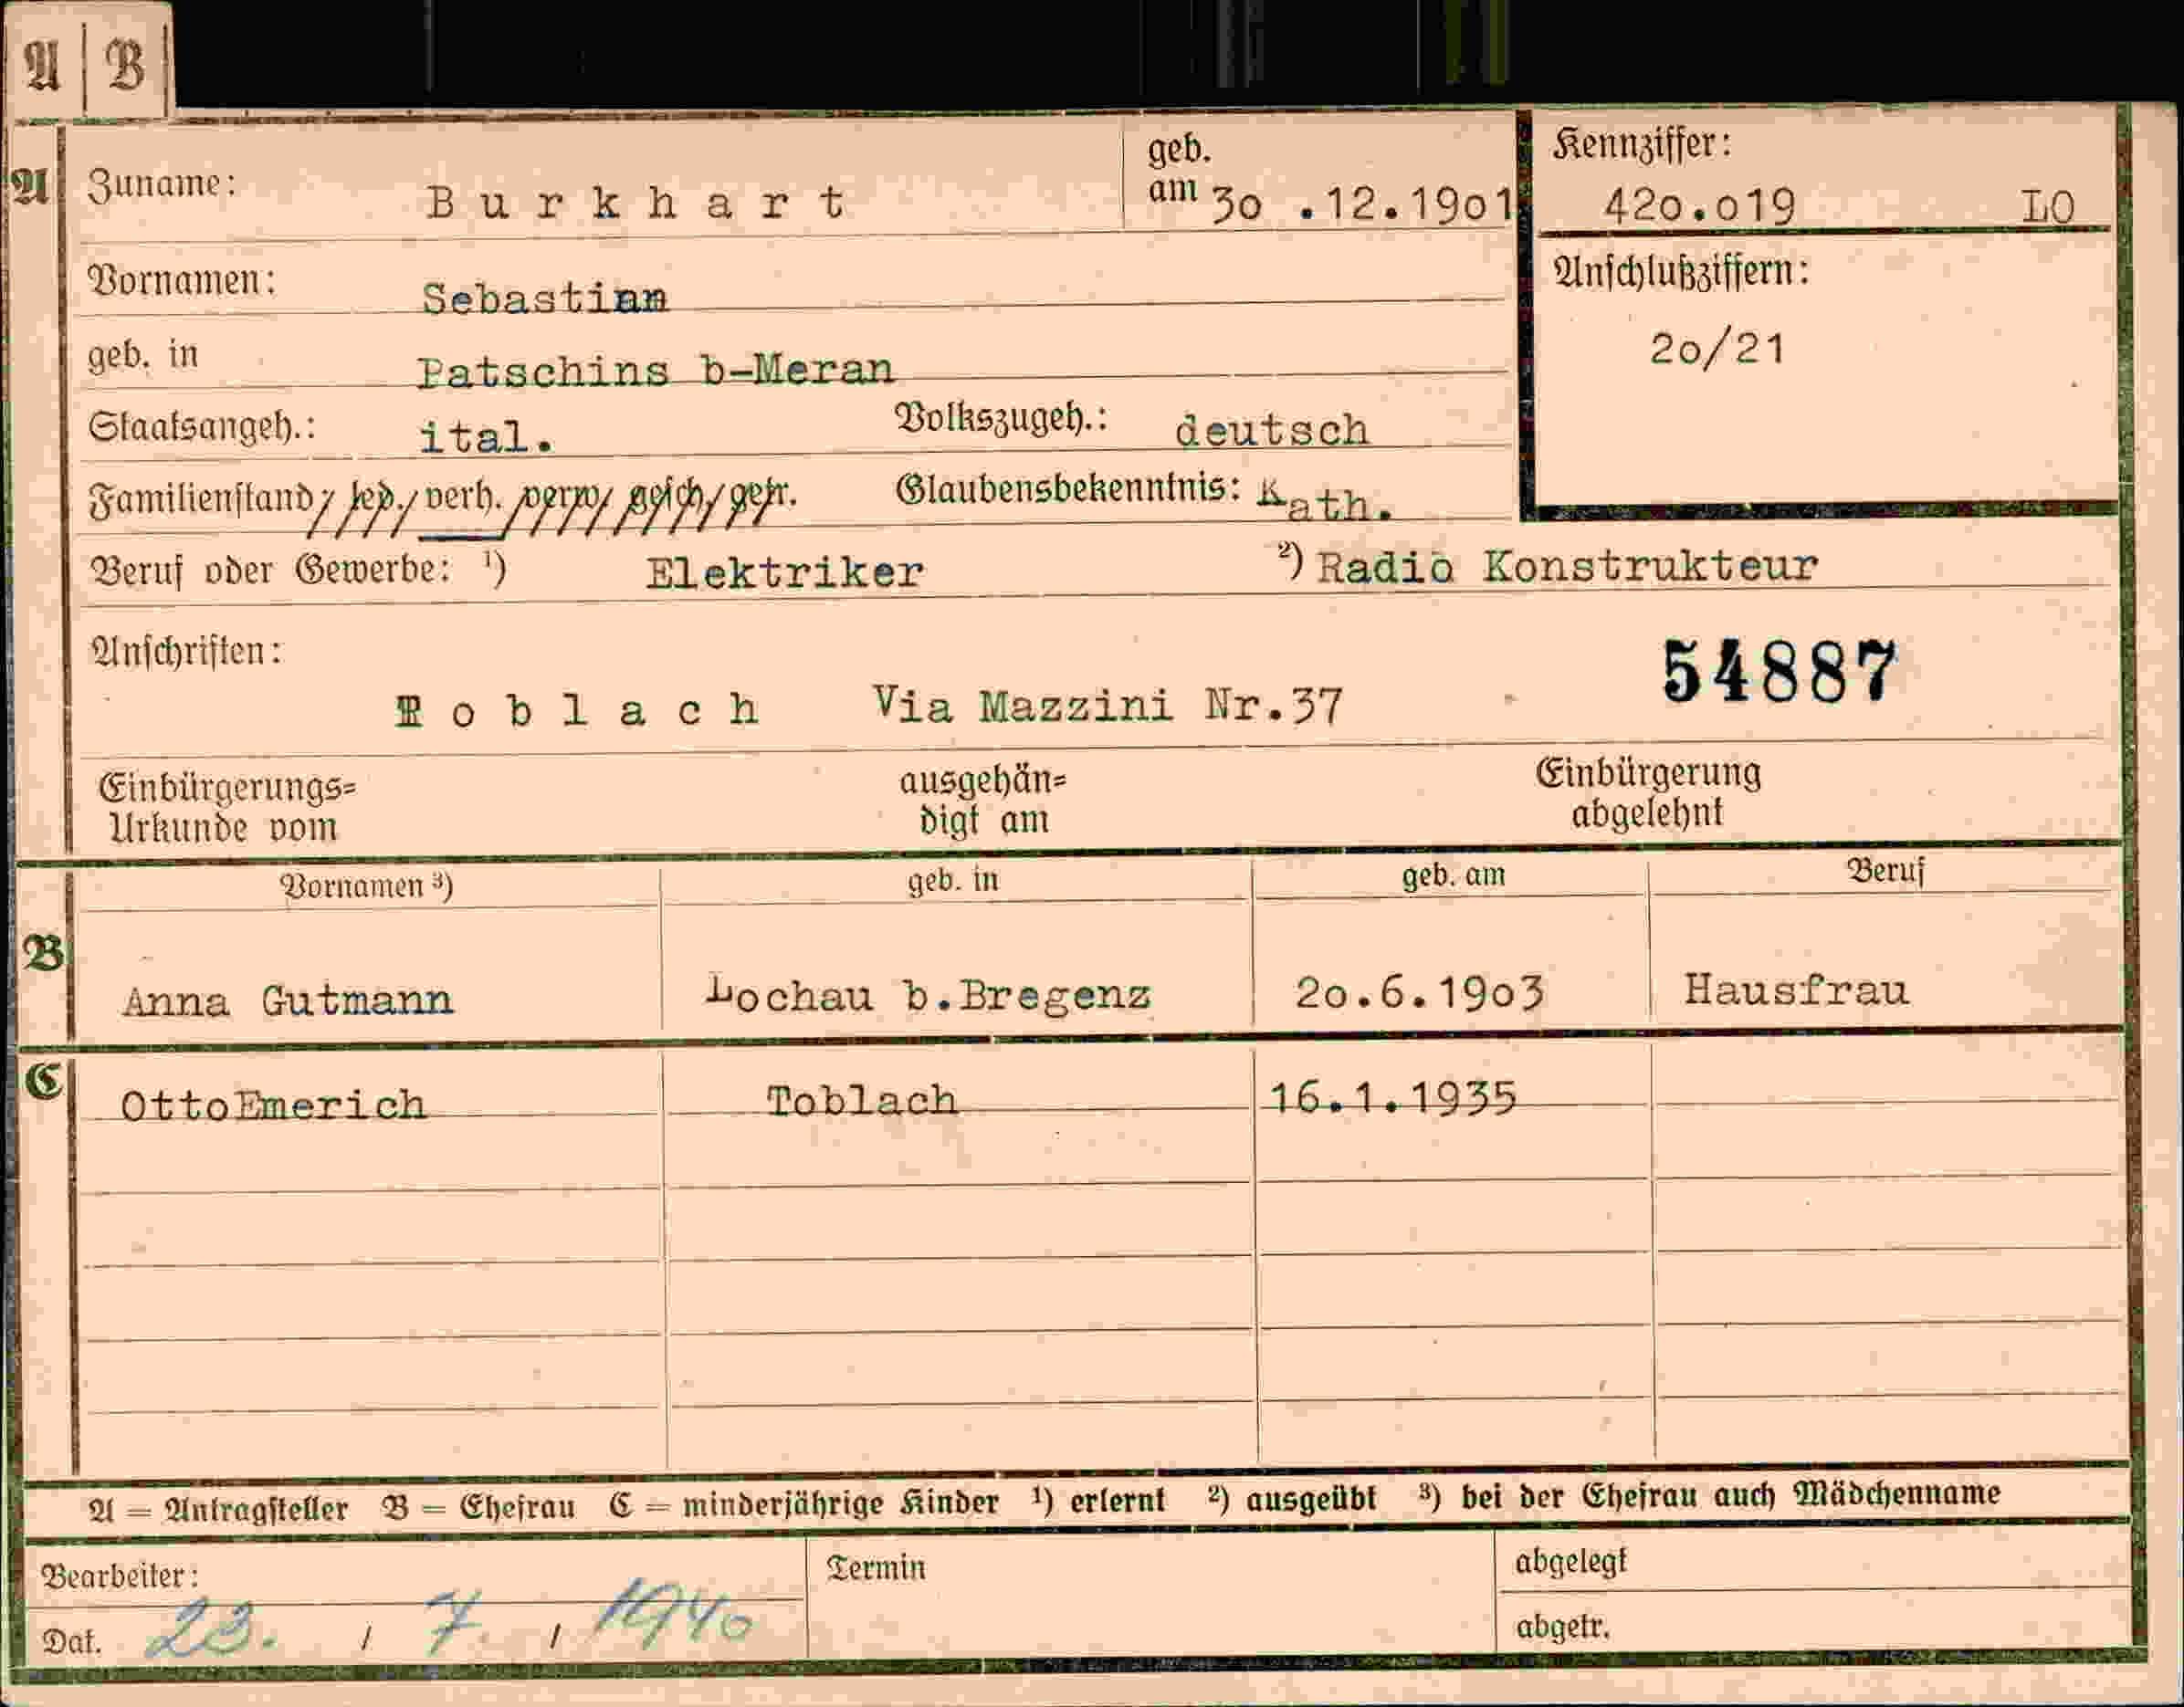 A | B
A Zuname: Burkhart geb. am 30.12.1901 Kennziffer: 420.019 LO
Vornamen: Sebastian Anschlußziffern:
geb. in Patschins b-Meran 20/21
Staatsangeh.: ital. Volkszugeh.: deutsch
Familienstand: led./verh./verw./gesch./getr. Glaubensbekenntnis: Kath.
Beruf oder Gewerbe: ¹) Elektriker ²) Radio Konstrukteur
Anschriften: 54887
Toblach Via Mazzini Nr.37
Einbürgerungs= ausgehän= Einbürgerung
Urkunde vom digt am abgelehnt
Vornamen ³) geb. in geb. am Beruf
B Anna Gutmann Lochau b.Bregenz 20.6.1903 Hausfrau
C OttoEmerich Toblach 16.1.1935
A = Antragsteller B = Ehefrau C = minderjährige Kinder ¹) erlernt ²) ausgeübt ³) bei der Ehefrau auch Mädchenname
Bearbeiter: Termin abgelegt
Dat. 23. / 7. / 1940 abgetr.